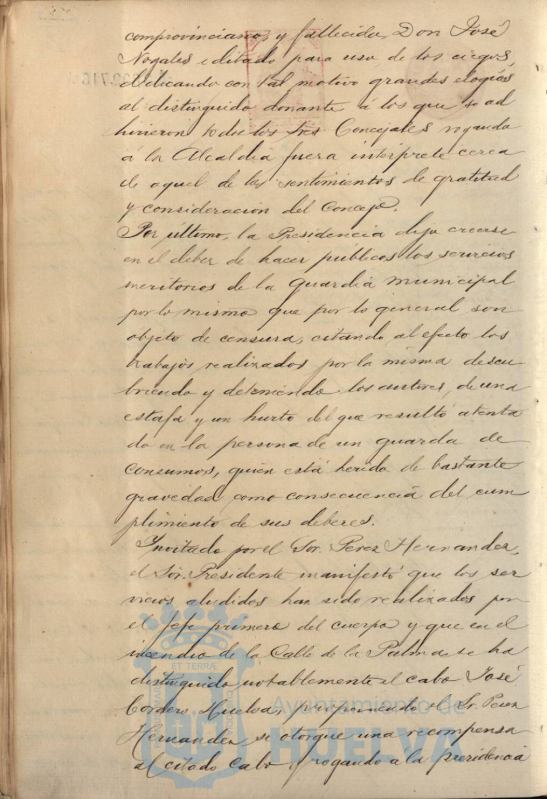 comprovinciano y fallecido, Don José
Nogales editado para uso de los ciegos,
dedicando con tal motivo grandes elogios
al distinguido donante á los que se ad
hirieron todos los Sres Concejales rogando
á la Alcaldia fuera intérprete cerca
de aquel de los sentimientos de gratitud
y consideración del Concejo.
Por último, la Presidencia dijo creerse
en el deber de hacer públicos los servicios
meritorios de la guardia municipal
por lo mismo que por lo general son
objeto de censura, citando al efecto los
trabajos realizados por la misma descu
briendo y deteniendo los autores, de una
estafa y un hurto del que resultó atenta
do en la persona de un guarda de
consumos, quien está herido de bastante
gravedad como consecuencia del cum
plimiento de sus deberes.
Invitado por el Sor. Perez Hernandez,
el Sor. Presidente manifestó que los ser
vicios aludidos han sido realizados por
el Jefe primero del cuerpo y que en el
incendio de la Calle de la Palma se ha
distinguido notablemente el cabo José
Cordero Huelva, proponiendo el Sr. Perez
Hernandez se otorgue una recompensa
al citado Cabo y rogando a la presidencia
ET TERRÆ
Ayuntamiento de
HUELVA